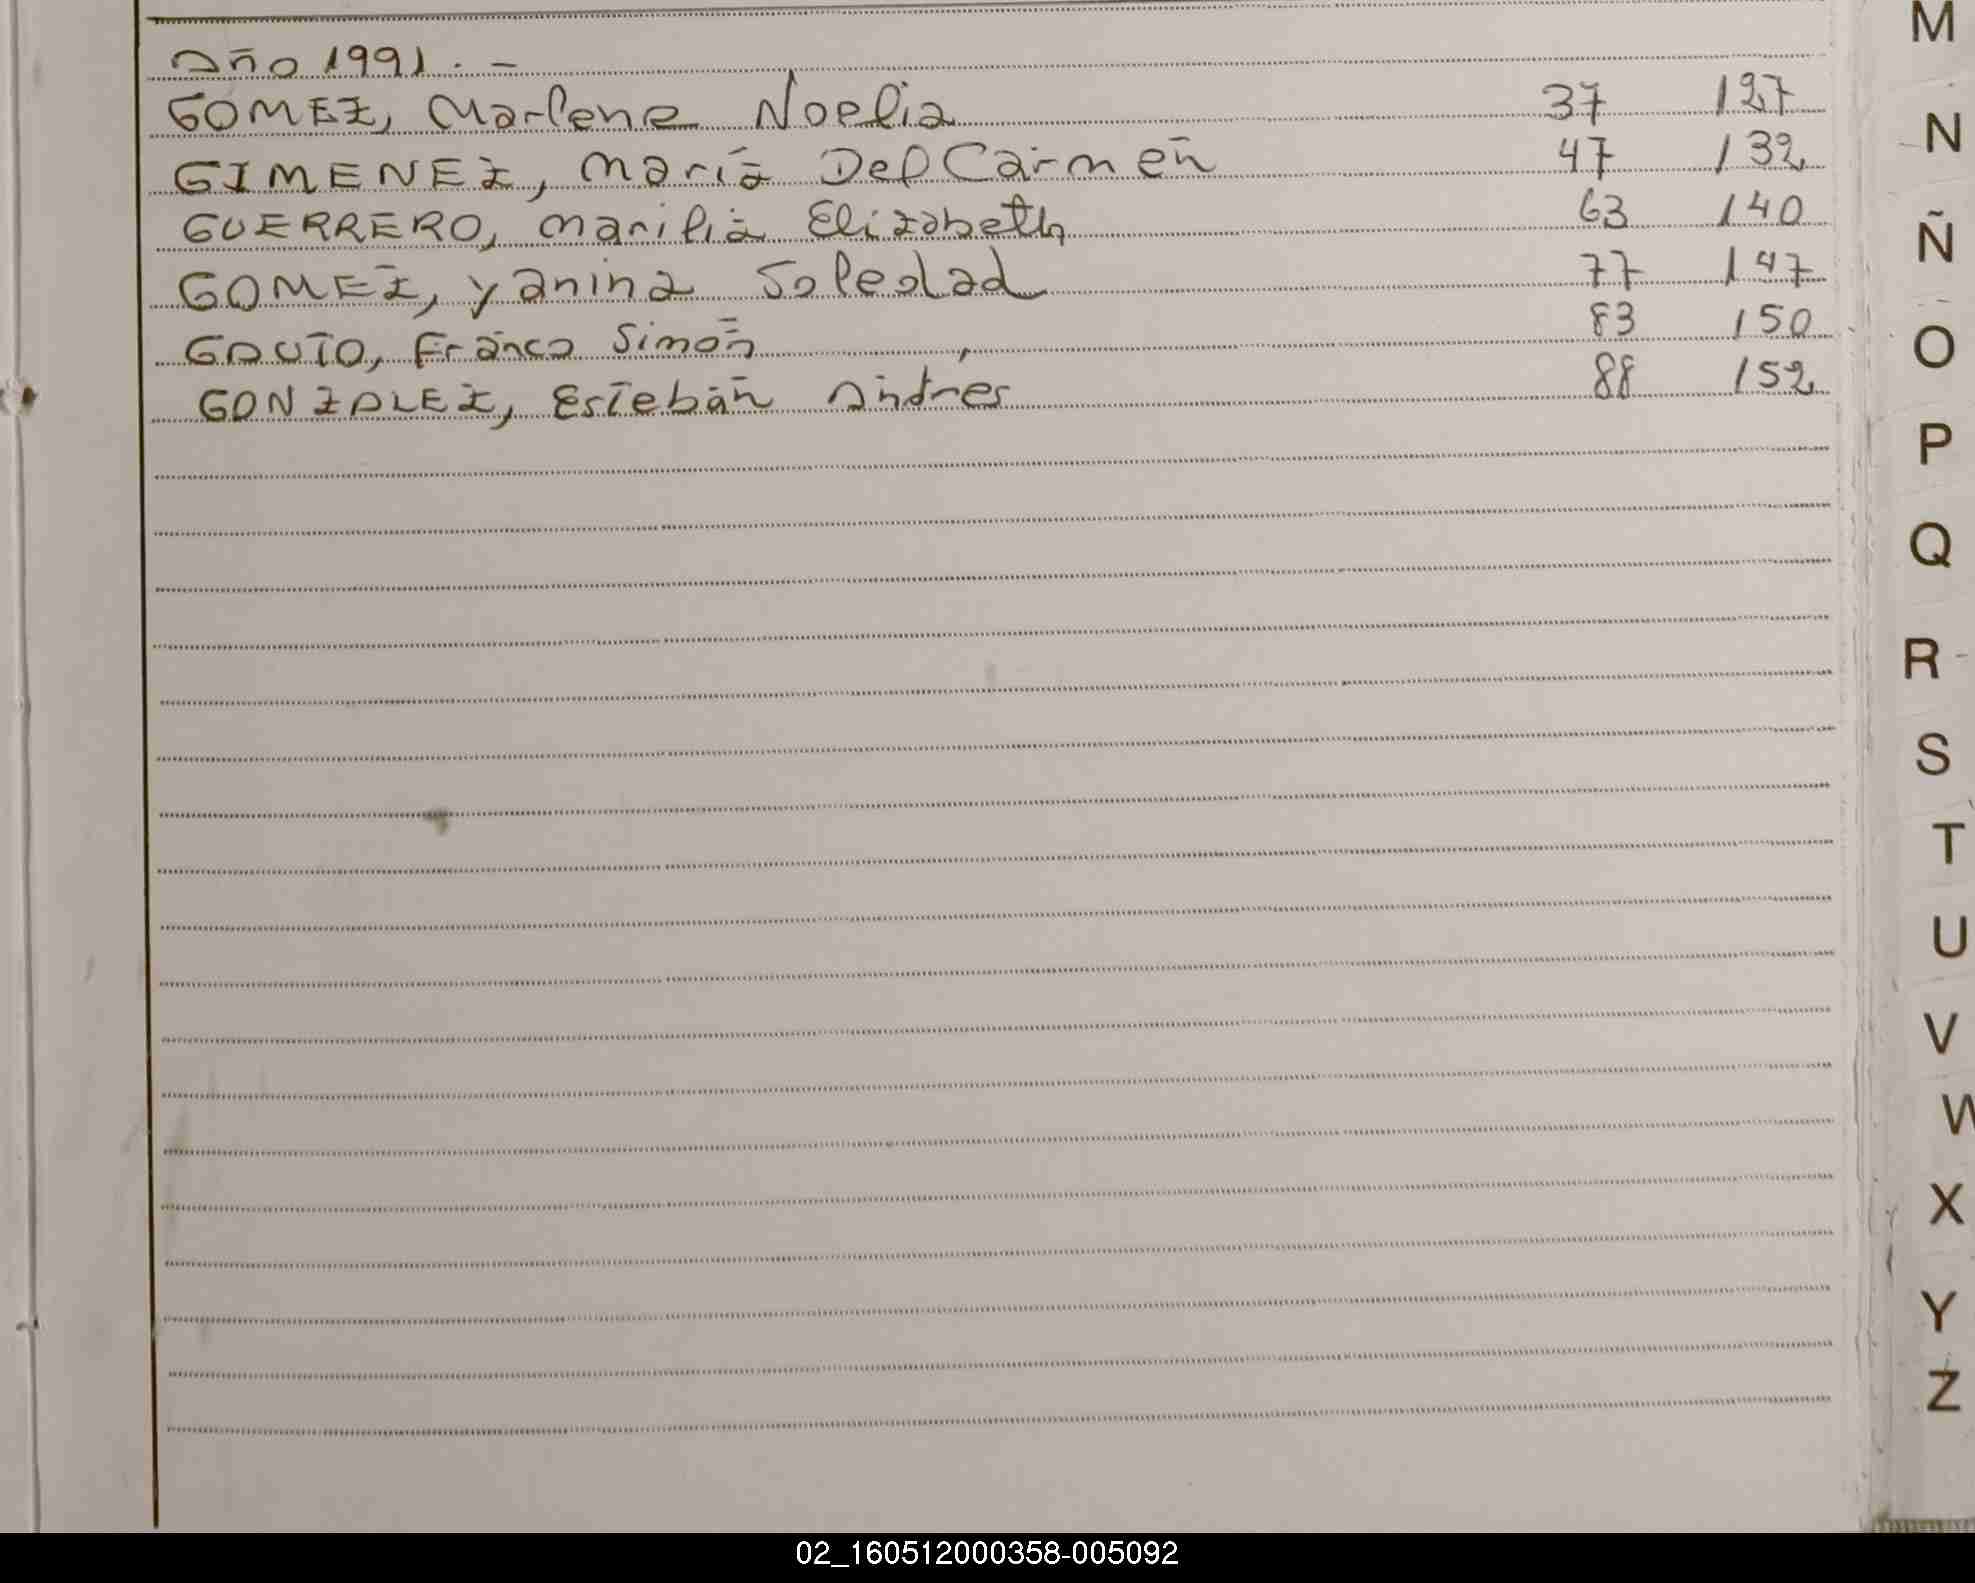 Año 1991. -
GOMEZ, Marlene Noelia 37 127
GIMENEZ, María Del Carmen 47 132
GUERRERO, Marilia Elizabeth 63 140
GOMEZ, Yanina Soledad 77 147
GAUTO, Franco Simón 83 150
GONZALEZ, Esteban Andres 88 152
M
N
Ñ
O
P
Q
R
S
T
U
V
W
X
Y
Z
02_160512000358-005092